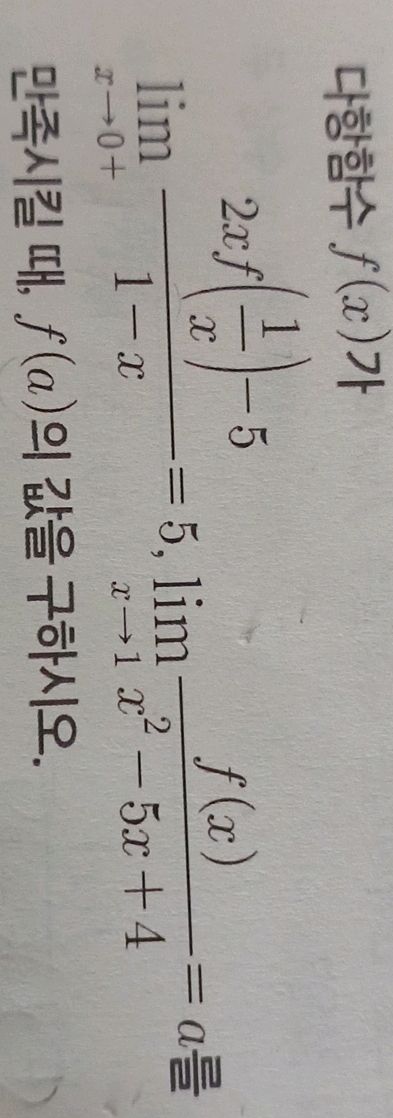 다항함수 f(x)가
lim_{x→0+} \frac{2xf(\frac{1}{x})-5}{1-x} = 5, lim_{x→1} \frac{f(x)}{x^2-5x+4} = a를
만족시킬 때, f(a)의 값을 구하시오.